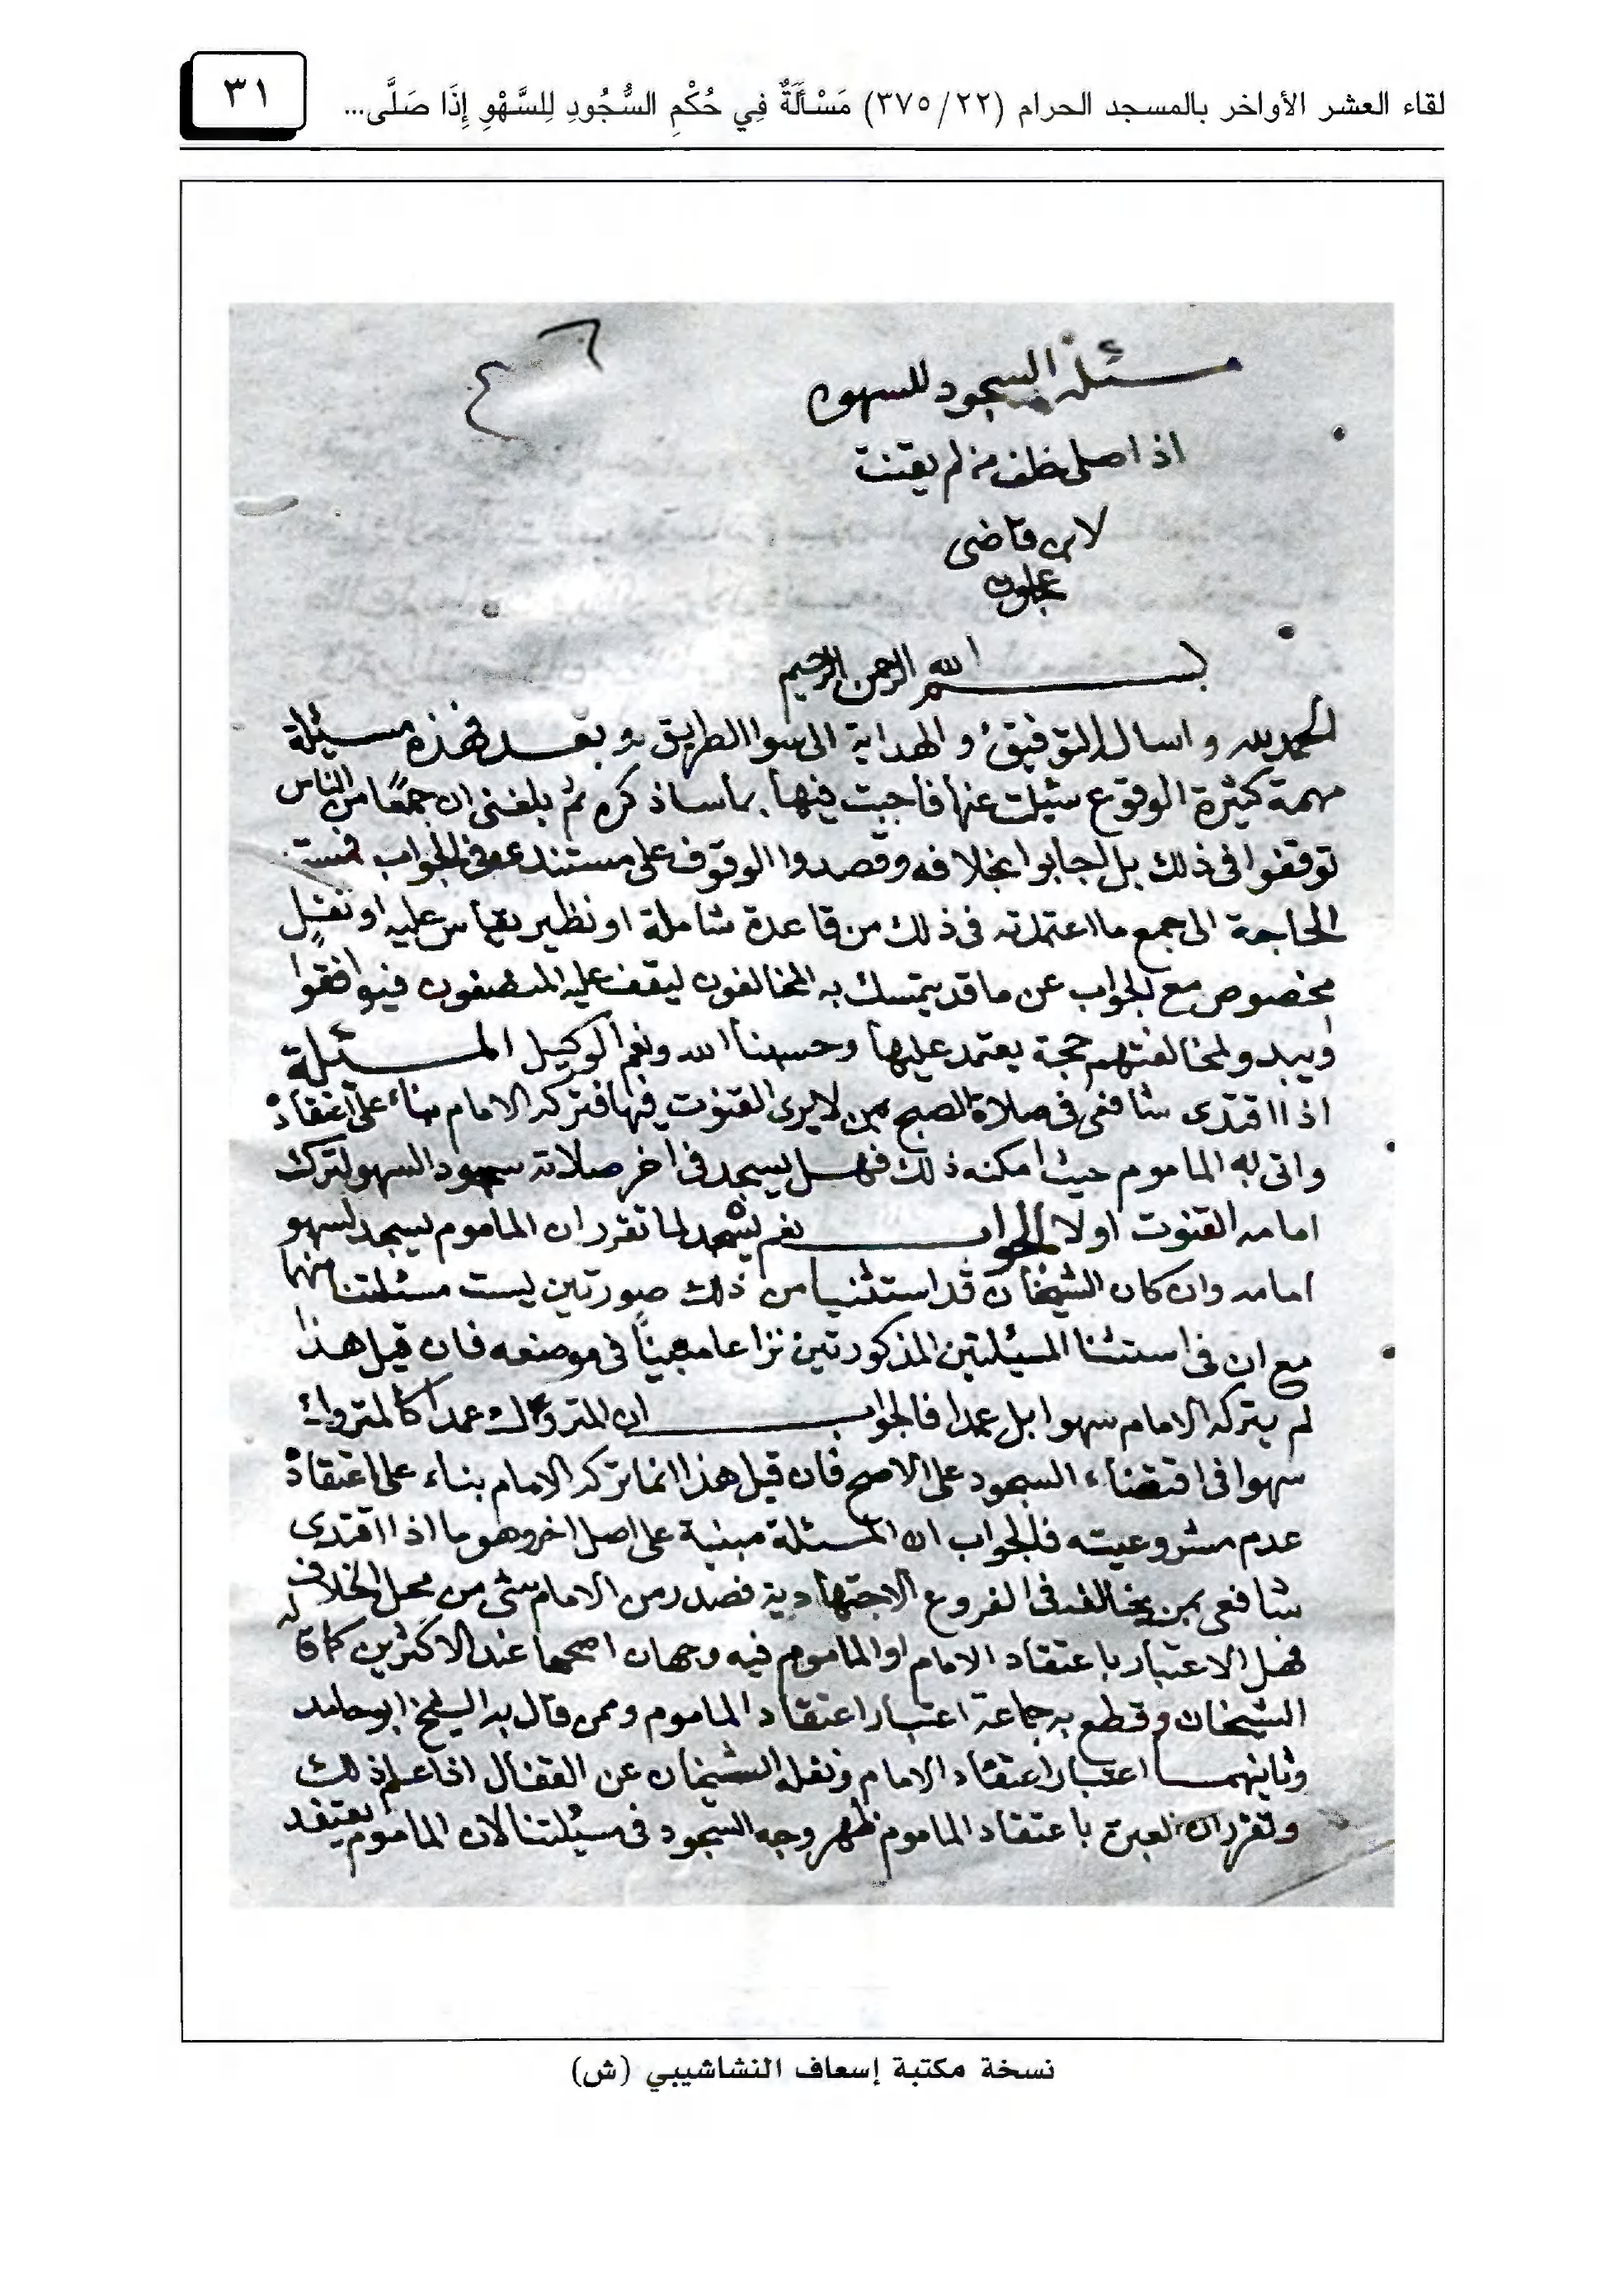 لقاء العشر الأواخر بالمسجد الحرام (٢٢/ ٣٧٥) مَسْأَلَةٌ فِي حُكْمِ السُّجُودِ لِلسَّهْوِ إِذَا صَلَّى...
٣١
مسئلة السجود للسهو
اذا صلى خلف من لم يقنت
لابن قاضى
عجلون
بسم الله الرحمن الرحيم
الحمد لله واسال الله التوفيق والهداية الى سوا الطريق وبعد فهذه مسئلة
مهمة كثيرة الوقوع سئلت عنها فاجبت فيها بما ساذكره ثم بلغنى ان جمعًا من الناس
توقفوا فى ذلك بل اجابوا بخلافه وقصدوا الوقوف على مستندى فى الجواب فمست
الحاجة الى جمع ما اعتمدته فى ذلك من قاعدة شاملة او نظير يقاس عليه او نقل
مخصوص مع الجواب عن ما قد يتمسك به المخالفون ليقف عليه المنصفون فيوافقوا
ويبدو لمخالفتهم حجة يعتمد عليها وحسبنا الله ونعم الوكيل المسئلة
اذا اقتدى شافعى فى صلاة الصبح بمن لا يرى القنوت فيها فتركه الامام بناء على اعتقاده
واتى به الماموم حيث امكنه ذلك فهل يسجد فى اخر صلاته سجود السهو لترك
امامه القنوت اولا الجواب نعم يسجد لما تقرر ان الماموم يسجد لسهو
امامه وان كان الشيخان قد استثنيا من ذلك صورتين ليست مسئلتنا منهما
مع ان فى استثنا المسئلتين المذكورتين نزاعا مبينًا فى موضعه فان قيل هذا
لم يتركه الامام سهوا بل عمدا فالجواب ان المتروك عمدا كالمتروك
سهوا فى اقتضاء السجود على الاصح فان قيل هذا انما تركه الامام بناء على اعتقاده
عدم مشروعيته فالجواب ان المسئلة مبنية على اصل اخر وهو ما اذا اقتدى
شافعى بمن يخالفه فى الفروع الاجتهادية فصدر من الامام شى من محل الخلاف
فهل الاعتبار باعتقاد الامام او الماموم فيه وجهان اصحهما عند الاكثرين كما قاله
الشيخان وقطع به جماعة اعتبار اعتقاد الماموم وممن قال به الشيخ ابو حامد
وثانيهما اعتبار اعتقاد الامام ونقله الشيخان عن القفال اذا علم ذلك
وتقرر ان العبرة باعتقاد الماموم ظهر وجه السجود فى مسئلتنا لان الماموم يعتقد
نسخة مكتبة إسعاف النشاشيبي (ش)